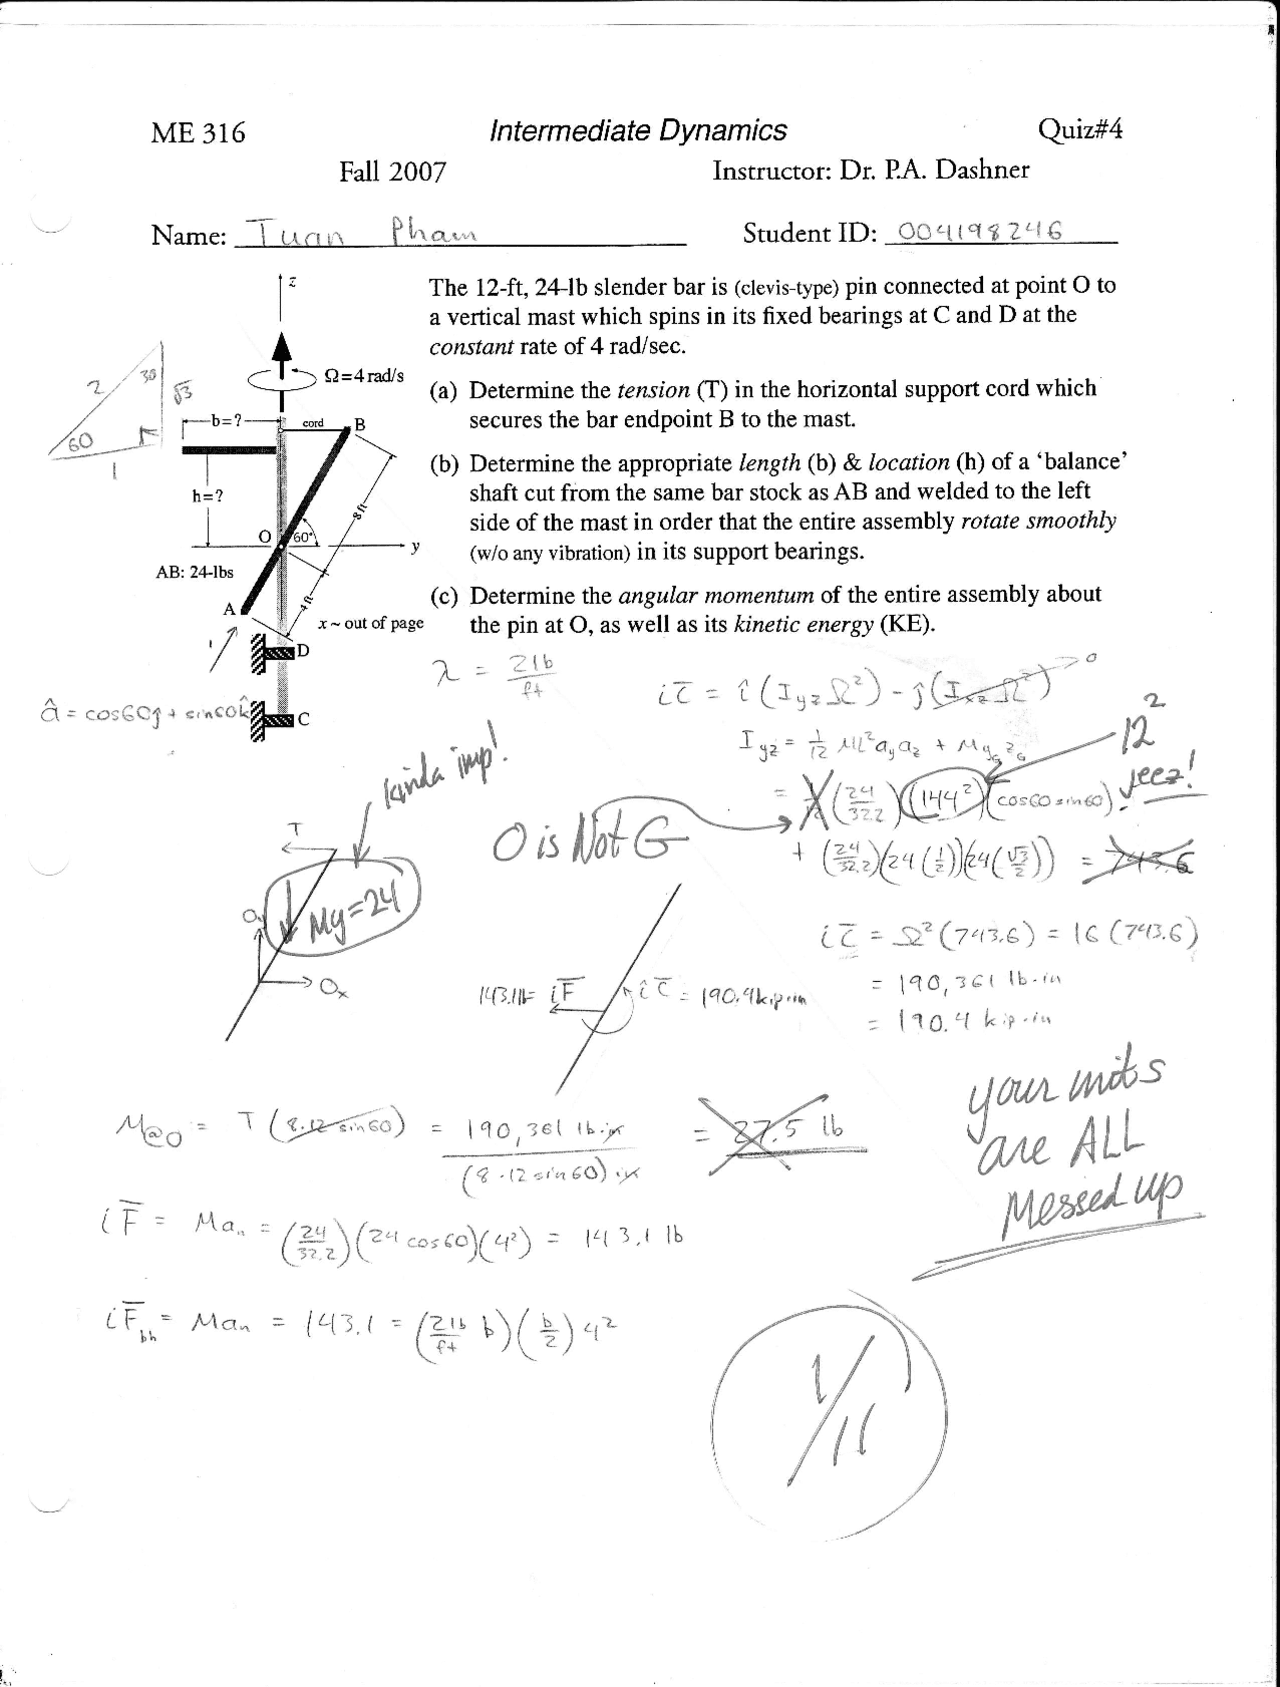 ME 316 Intermediate Dynamics Quiz#4
Fall 2007 Instructor: Dr. P.A. Dashner
Name: Tuan Pham Student ID: 004198246
The 12-ft, 24-lb slender bar is (clevis-type) pin connected at point O to
a vertical mast which spins in its fixed bearings at C and D at the
constant rate of 4 rad/sec.
(a) Determine the tension (T) in the horizontal support cord which
secures the bar endpoint B to the mast.
(b) Determine the appropriate length (b) & location (h) of a ‘balance’
shaft cut from the same bar stock as AB and welded to the left
side of the mast in order that the entire assembly rotate smoothly
(w/o any vibration) in its support bearings.
(c) Determine the angular momentum of the entire assembly about
the pin at O, as well as its kinetic energy (KE).
z
Ω=4 rad/s
2 30 √3
60
1
b=?
cord
B
h=?
8 ft
O 60°
y
AB: 24-lbs
A
4 ft
x ~ out of page
D
C
â = cos60ĵ + sin60k̂
λ = 2lb/ft
iC̄ = î(I_yz Ω²) - ĵ(I_xz Ω²) → 0
I_yz = 1/12 ML² a_y a_z + M y_G z_G
= (24/32.2)(144²)(cos60 sin60)
12²
Jeez!
+ (24/32.2)(24(1/2))(24(√3/2)) = 743.6
O is Not G
kinda imp!
T
Mg=24
O_x
iC̄ = Ω²(743.6) = 16(743.6)
= 190,361 lb·in
= 190.4 kip·in
143.1lb = iF̄
iC̄ = 190.4 kip·in
your units
are ALL
Messed up
M@O = T(8·12 sin60) = 190,361 lb·in / (8·12 sin60) in = 27.5 lb
iF̄ = Ma_n = (24/32.2)(24 cos60)(4²) = 143.1 lb
iF̄_bh = Ma_n = 143.1 = (2lb/ft b)(b/2) 4²
1/11